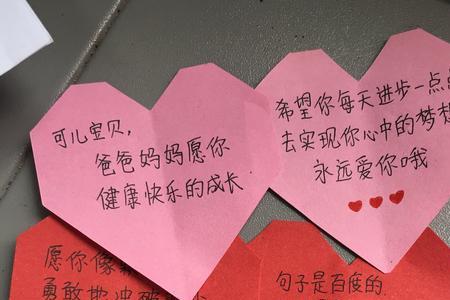 可儿宝贝，
爸爸妈妈愿你
健康快乐的成长
希望你每天进步一点点
去实现你心中的梦想
永远爱你哦
愿你像
勇敢
句子是百度的